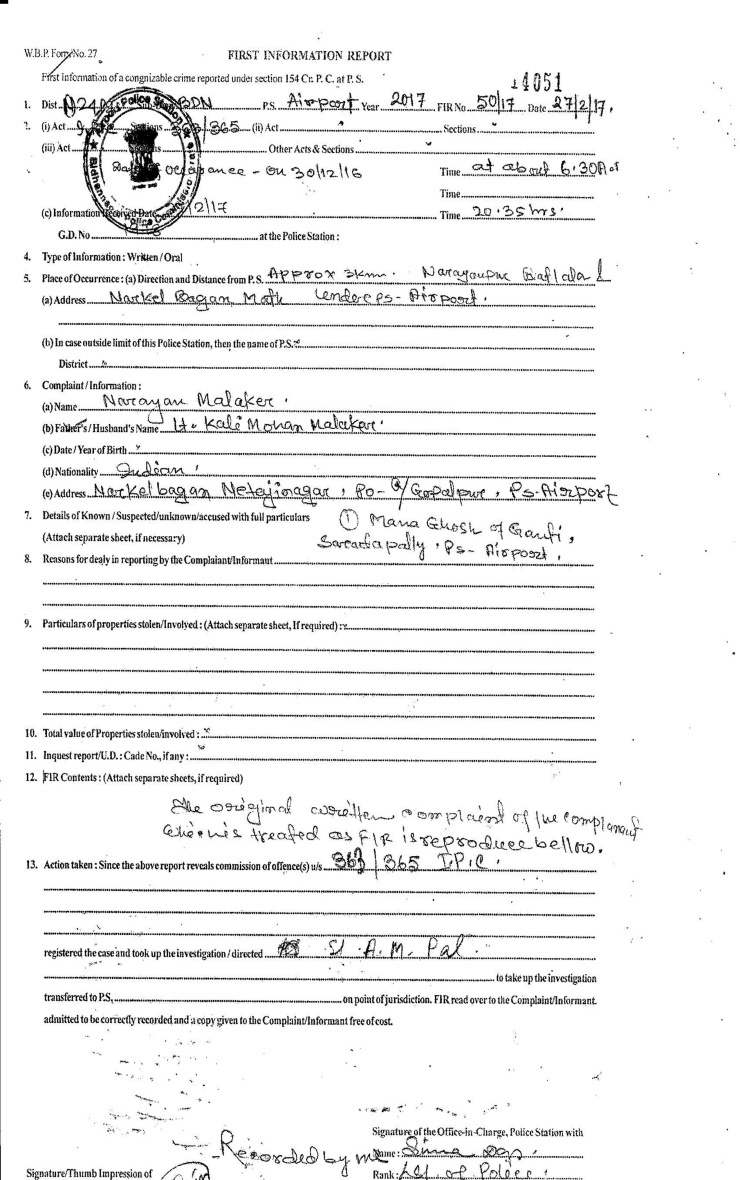 W.B.P. Form No. 27
FIRST INFORMATION REPORT
First information of a congnizable crime reported under section 154 Cr. P. C. at P. S.
14051
1. Dist. BDN P.S. Airport Year 2017 FIR No 50/17 Date 27/2/17.
2. (i) Act Sections 363/365 (ii) Act Sections
(iii) Act Sections Other Acts & Sections
Occurance - on 30/12/16 Time at about 6.30
Time
(c) Information Received Date 2/17 Time 20.35 hrs.
G.D. No at the Police Station :
4. Type of Information : Written / Oral
5. Place of Occurrence : (a) Direction and Distance from P.S. Approx 3km.
(a) Address Narkel Bagan, Math Under PS- Airport.
(b) In case outside limit of this Police Station, then the name of P.S.
District
6. Complaint / Information :
(a) Name Narayan Malaker.
(b) Father's / Husband's Name Lt. Kali Mohan Malakar
(c) Date / Year of Birth
(d) Nationality Indian
(e) Address Narkelbagan Netajinagar, Po- R/Gopalpur, Ps. Airport
7. Details of Known / Suspected/unknown/accused with full particulars ① Mana Ghosh of Ganti,
(Attach separate sheet, if necessary) Saradapally, Ps - Airport.
8. Reasons for dealy in reporting by the Complaiant/Informaut
9. Particulars of properties stolen/Involved : (Attach separate sheet, If required) :
10. Total value of Properties stolen/involved :
11. Inquest report/U.D. : Cade No., if any :
12. FIR Contents : (Attach separate sheets, if required)
The original written complaint of the complainant
which is treated as FIR is reproduce bellow.
13. Action taken : Since the above report reveals commission of offence(s) u/s 363/365 I.P.C.
registered the case and took up the investigation / directed SI A.M. Pal.
to take up the investigation
transferred to P.S, on point of jurisdiction. FIR read over to the Complaint/Informant.
admitted to be correctly recorded and a copy given to the Complaint/Informant free of cost.
Signature of the Office-in-Charge, Police Station with
Recorded by me Name :
Signature/Thumb Impression of Rank : of Police